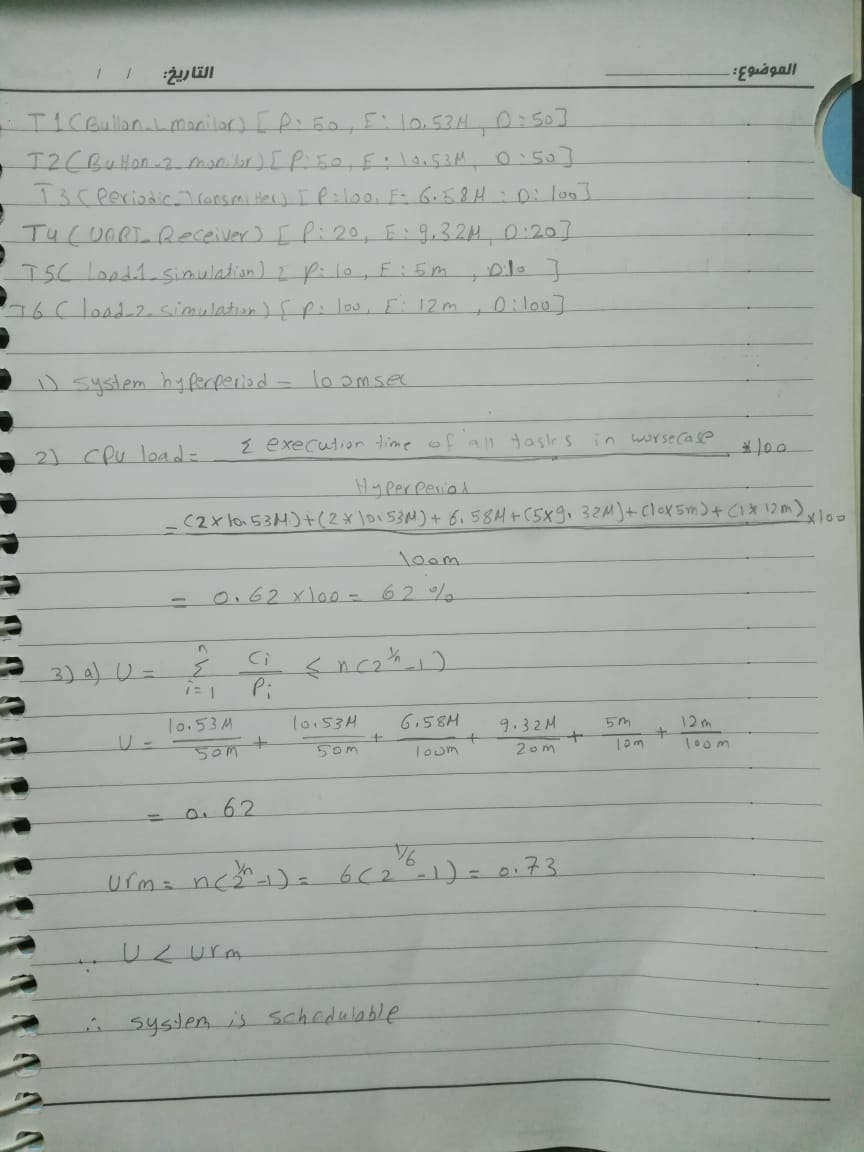 الموضوع: التاريخ: / /
T1(Button_1_monitor) [ P: 50, E: 10.53M, D:50]
T2(Button_2_monitor) [ P:50, E: 10.53M, D:50]
T3 (Periodic_Transmitter) [ P:100, E: 6.58M : D: 100]
T4 (UART_Receiver) [ P: 20, E: 9.32M, D:20]
T5( load_1_simulation) [ P: 10, E: 5m , D:10 ]
T6 ( load_2_simulation) [ P: 100, E: 12m , D:100]
1) system hyperperiod = 100msec
2) CPU load = Σ execution time of all tasks in worsecase *100
Hyperperiod
= (2×10.53M)+(2×10.53M)+6.58M+(5×9.32M)+(10×5m)+(1×12m) ×100
100m
= 0.62 ×100 = 62 %
3) a) U = n Σ i=1 Ci/Pi ≤ n(2^1/n -1)
U = 10.53M/50m + 10.53M/50m + 6.58M/100m + 9.32M/20m + 5m/10m + 12m/100m
= 0.62
Urm = n(2^1/n -1) = 6(2^1/6 -1) = 0.73
∵ U < Urm
∴ system is schedulable